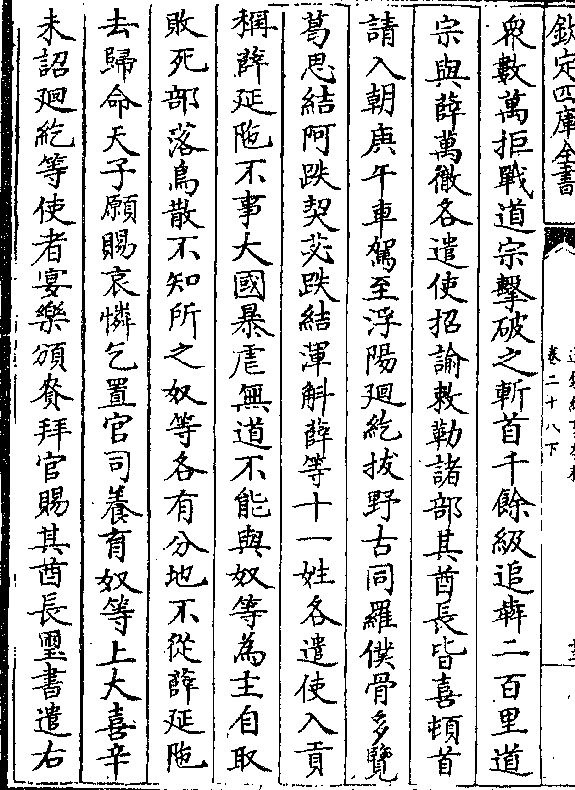 欽定四庫全書
卷二十八下
衆數萬拒戰道宗擊破之斬首千餘級追犇二百里道
宗與薛萬徹各遣使招諭敕勒諸部其酋長皆喜頓首
請入朝庚午車駕至浮陽廻紇拔野古同羅僕骨多覽
葛思結阿跌契苾跌結渾斛薛等十一姓各遣使入貢
稱薛延陁不事大國暴虐無道不能與奴等為主自取
敗死部落鳥散不知所之奴等各有分地不從薛延陁
去歸命天子願賜哀憐乞置官司養育奴等上大喜辛
未詔廻紇等使者宴樂頒賚拜官賜其酋長璽書遣右